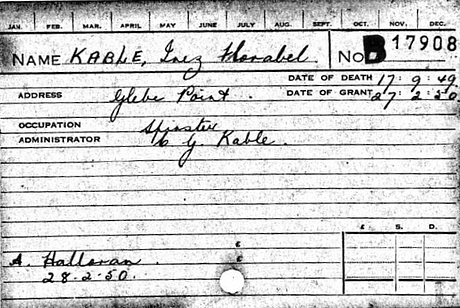 JAN. FEB. MAR. APRIL MAY JUNE JULY AUG. SEPT. OCT. NOV. DEC.
NAME KABLE, Inez Florabel No. B 17908
DATE OF DEATH 17.9.49
ADDRESS Glebe Point. DATE OF GRANT 27.2.50
OCCUPATION Spinster
ADMINISTRATOR G. Kable.
£ S. D.
£
A. Halloran. £
28-2-50.